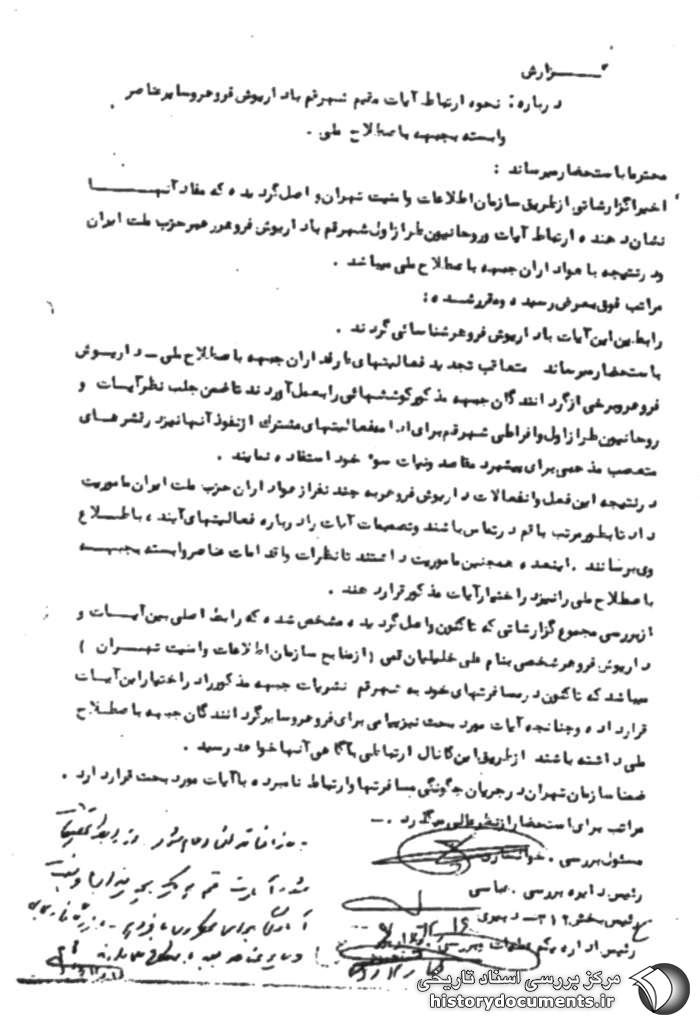 گزارش
درباره: نحوه ارتباط آیات مقیم شهرقم با داریوش فروهر و سایر عناصر
وابسته بجبهه باصطلاح ملی .
محترما باستحضار میرساند :
اخیرا گزارشاتی از طریق سازمان اطلاعات و امنیت تهران واصل گردیده که مفاد آنها
نشان دهنده ارتباط آیات و روحانیون طراز اول شهرقم با داریوش فروهر رهبر حزب ملت ایران
و در نتیجه با هواداران جبهه باصطلاح ملی میباشد .
مراتب فوق بعرض رسیده و مقرر شده :
رابط بین این آیات با داریوش فروهر شناسائی گردند .
باستحضار میرساند متعاقب تجدید فعالیتهای طرفداران جبهه باصطلاح ملی - داریوش
فروهر و برخی از گردانندگان جبهه مذکور کوششهائی را بعمل آوردند تا ضمن جلب نظر آیات و
روحانیون طراز اول و افراطی شهرقم برای ادامه فعالیتهای مشترک از نفوذ آنها نیز در قشرهای
متعصب مذهبی برای پیشبرد مقاصد و نیات سوء خود استفاده نمایند .
در نتیجه این فعل و انفعالات داریوش فروهر به چند نفر از هواداران حزب ملت ایران ماموریت
داد تا بطور مرتب با قم در تماس باشند و تصمیمات آیات را درباره فعالیتهای آینده ، باطلاع
وی برسانند . اینعده همچنین ماموریت داشتند تا نظرات و اقدامات عناصر وابسته بجبهه
باصطلاح ملی را نیز در اختیار آیات مذکور قرار دهند .
از بررسی مجموع گزارشاتی که تاکنون واصل گردیده مشخص شده که رابط اصلی بین آیات و
داریوش فروهر شخصی بنام علی خلیلیان قمی ( از منابع سازمان اطلاعات و امنیت تهران )
میباشد که تاکنون در مسافرتهای خود به شهرقم نشریات جبهه مذکور را در اختیار این آیات
قرار داده و چنانچه آیات مورد بحث نیز پیامی برای فروهر و سایر گردانندگان جبهه باصطلاح
ملی داشته باشند از طریق این کانال ارتباطی باگاهی آنها خواهد رسید .
ضمنا سازمان تهران در جریان چگونگی مسافرتها و ارتباط نامبرده با آیات مورد بحث قرار دارد .
مراتب برای استحضار از نظر عالی میگذرد . -
مسئول بررسی . خوانساری
رئیس دایره بررسی . عباسی
رئیس بخش ۳۱۲ - دبیری
رئیس اداره یکم عملیات و بررسی .
مرکز بررسی اسناد تاریخی
historydocuments.ir